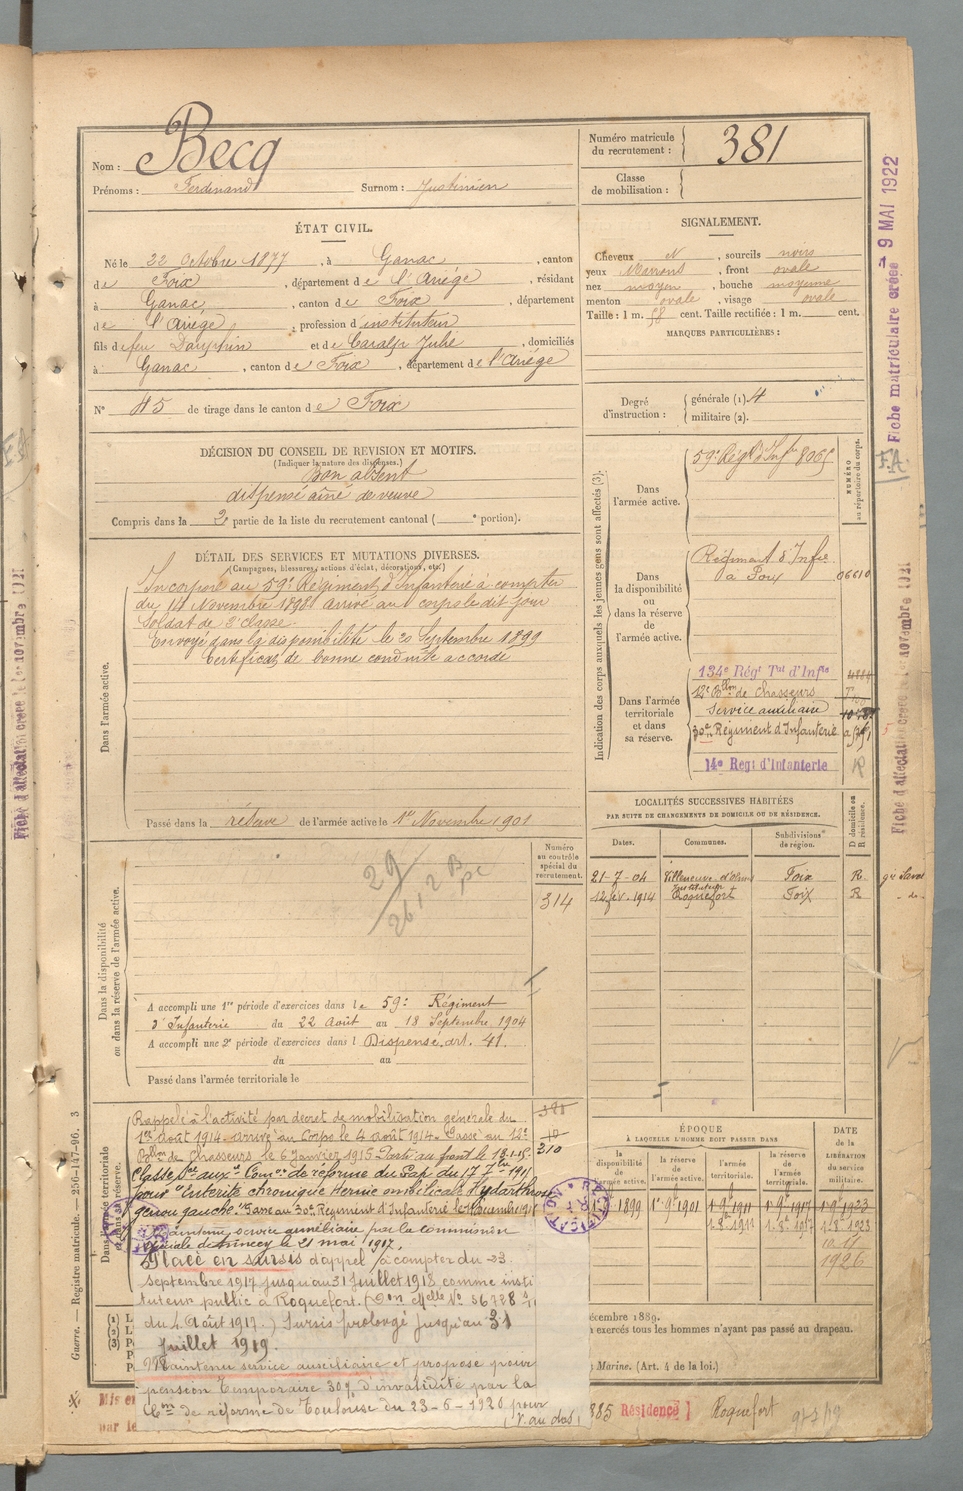 Nom : Becq
Prénoms : Ferdinand Surnom : Justinien
Numéro matricule du recrutement : 381
Classe de mobilisation :
ÉTAT CIVIL.
Né le 22 Octobre 1877, à Ganac, canton
de Foix, département de l'Ariége, résidant
à Ganac, canton de Foix, département
de l'Ariége, profession d'instituteur
fils de feu Dauphin et de Caralp Julie, domiciliés
à Ganac, canton de Foix, département de l'Ariége
N° 45 de tirage dans le canton de Foix
SIGNALEMENT.
Cheveux N, sourcils noirs
yeux Marrons, front ovale
nez moyen, bouche moyenne
menton ovale, visage ovale
Taille : 1 m. 58 cent. Taille rectifiée : 1 m. cent.
MARQUES PARTICULIÈRES :
Degré d'instruction : générale (1). 4
militaire (2).
DÉCISION DU CONSEIL DE REVISION ET MOTIFS.
(Indiquer la nature des dispenses.)
Bon absent
dispensé aîné de veuve
Compris dans la 2e partie de la liste du recrutement cantonal ( e portion).
DÉTAIL DES SERVICES ET MUTATIONS DIVERSES.
(Campagnes, blessures, actions d'éclat, décorations, etc.)
Dans l'armée active.
Incorporé au 59e Régiment d'Infanterie à compter
du 14 Novembre 1898 arrivé au corps le dit jour
Soldat de 2e classe.
Envoyé dans la disponibilité le 20 Septembre 1899
Certificat de bonne conduite accordé
Passé dans la réserve de l'armée active le 1er Novembre 1901
Indication des corps auxquels les jeunes gens sont affectés (3).
NUMÉRO au répertoire du corps.
Dans l'armée active.
59e Régt d'Infie 8065
Dans la disponibilité ou dans la réserve de l'armée active.
Régiment d'Infie
à Foix 06610
Dans l'armée territoriale et dans sa réserve.
134e Régt Tal d'Infie
12e Bllon de chasseurs
Service auxiliaire
30e Régiment d'Infanterie
14e Regt d'Infanterie
R
LOCALITÉS SUCCESSIVES HABITÉES
PAR SUITE DE CHANGEMENTS DE DOMICILE OU DE RÉSIDENCE.
Dates. Communes. Subdivisions de région. D domicile ou R résidence.
21-7-04 Villeneuve d'Olmes Foix R
Instituteur
12 fév. 1914 Roquefort Foix R
Dans la disponibilité ou dans la réserve de l'armée active.
Numéro au contrôle spécial du recrutement.
314
29
A accompli une 1re période d'exercices dans le 59e Régiment
d'Infanterie du 22 Août au 18 Septembre 1904
A accompli une 2e période d'exercices dans l Dispensé art. 41.
du au
Passé dans l'armée territoriale le
Dans l'armée territoriale et dans sa réserve.
310
Rappelé à l'activité par decret de mobilisation générale du
1er août 1914. arrivé au Corps le 4 août 1914. Passé au 12e
Bllon de Chasseurs le 6 Janvier 1915
Classé Sce auxre Comon de réforme du 17
pour "Entérite chronique Hernie ombilicale Hydarthrose
genou gauche. Passé au 30e Régiment d'Infanterie le
Maintenu service auxiliaire par la commission
spéciale de Annecy le 21 mai 1917.
Placé en sursis d'appel à compter du 23
septembre 1917 jusqu'au 31 Juillet 1918 comme insti
tuteur public à Roquefort. (Don Mlle No 56728
du 4 Août 1917.) Sursis prolongé jusqu'au 31
Juillet 1919.
Maintenu service auxiliaire et proposé pour
pension temporaire 30% d'invalidité par la
Com de réforme de Toulouse du 23-6-1920 pour
(V. au dos)
ÉPOQUE
À LAQUELLE L'HOMME DOIT PASSER DANS
la disponibilité de l'armée active. la réserve de l'armée active. l'armée territoriale. la réserve de l'armée territoriale.
DATE de la LIBÉRATION du service militaire.
1899 1er 9e 1901 1er 9e 1911 1er 9e 1917 1er 9e 1923
1926
décembre 1889.
n exercés tous les hommes n'ayant pas passé au drapeau.
Marine. (Art. 4 de la loi.)
Guerre. — Registre matricule. — 256-147-96. 3
Fiche matriculaire créée 9 MAI 1922
F.A.
Résidence Roquefort